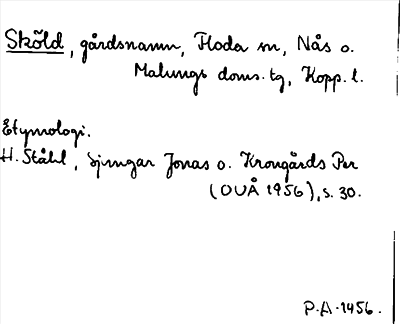 Sköld, gårdsnamn, Floda sn, Nås o.
Malungs doms. tg, Kopp. l.
Etymologi.
H. Ståhl, Sjungar Jonas o. Krongårds Per
(OUÅ 1956), s. 30.
P.A. 1456.